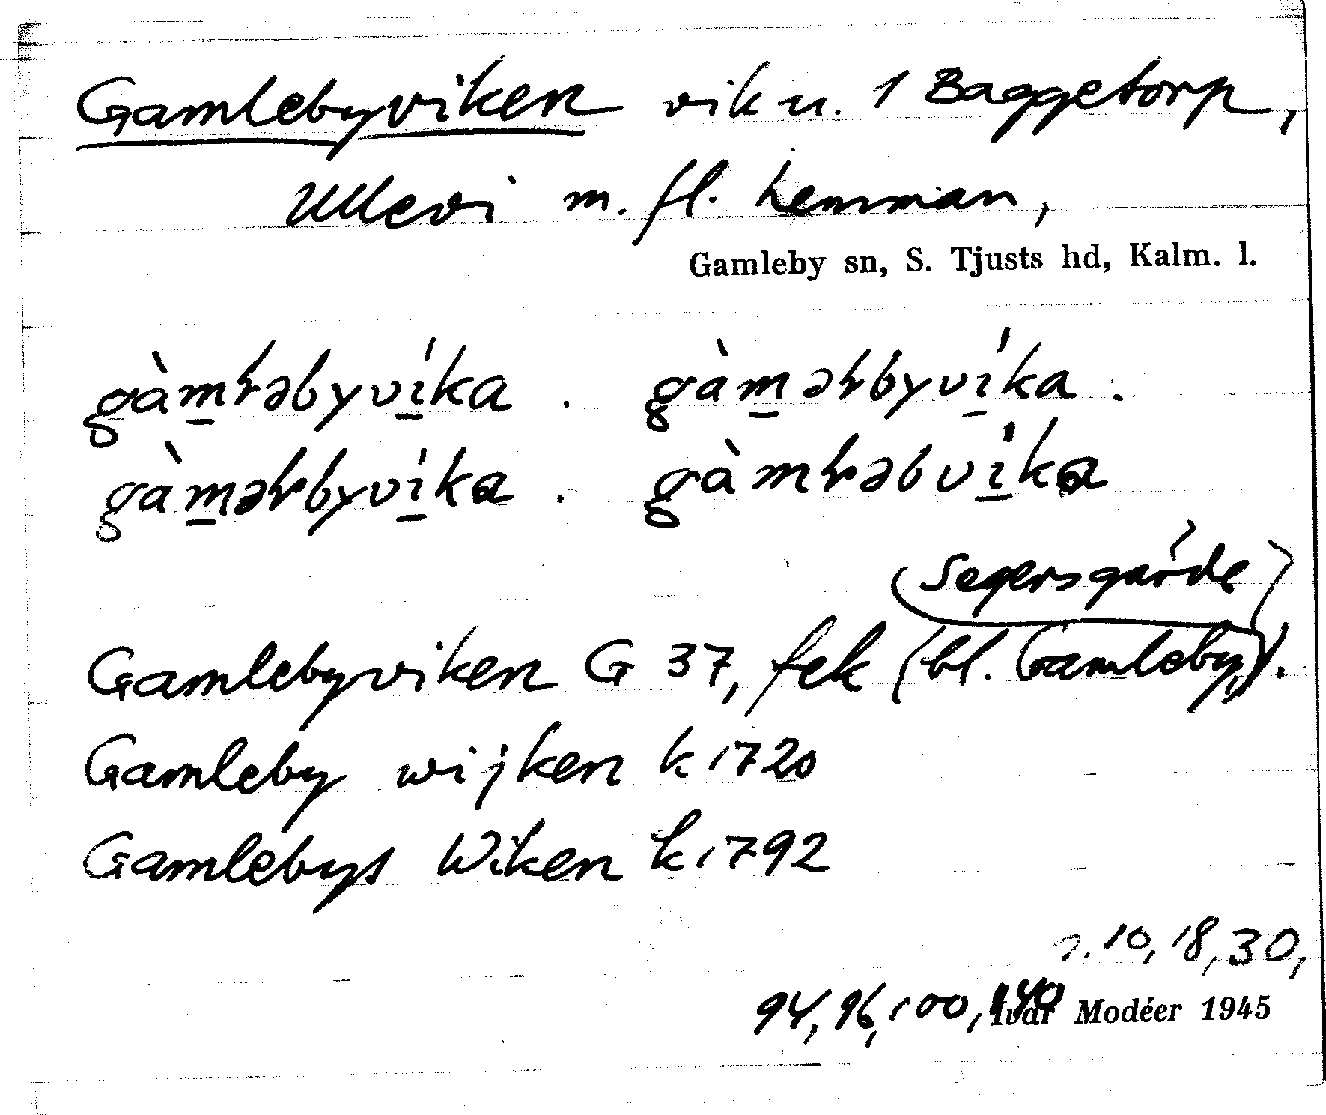 Gamlebyviken vik u. 1 Baggetorp,
Ullevi m. fl. hemman,
Gamleby sn, S. Tjusts hd, Kalm. l.
gàm̲ɫəbyví̲ka . gàm̲əɫbyví̲ka .
gàm̲əɫbyví̲kɑ . gàmɫəbví̲kɑ
(Segersgärde)
Gamlebyviken G 37, fek (bl. Gamleby).
Gamleby wijken k 1720
Gamlebys Wiken k 1792
10, 18, 30,
94, 96, 100, 140
Ivar Modéer 1945